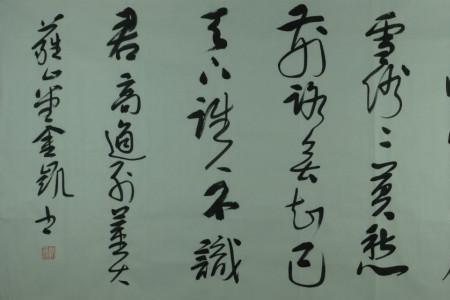 雪紛〻莫愁
前路無知己
天下誰人不識
君高適別董大
山金凱书